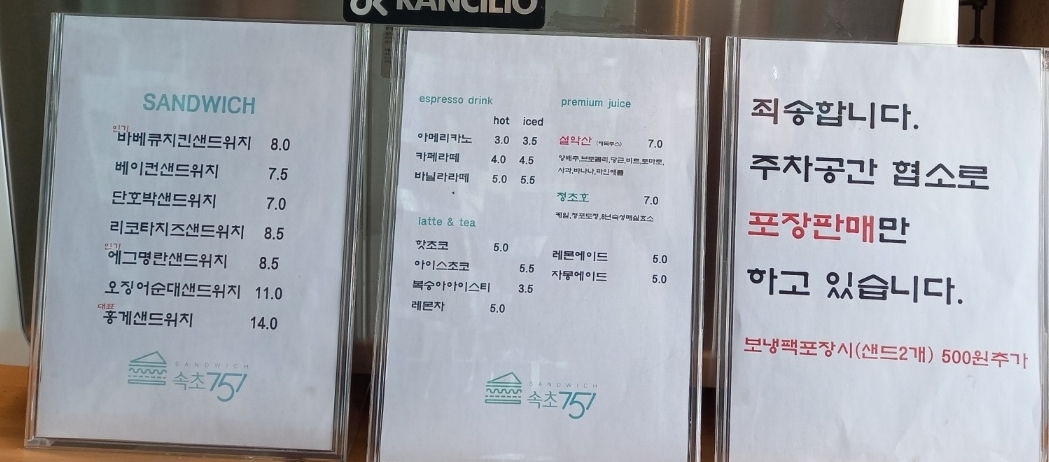 RANCILIO
SANDWICH
인기
바베큐치킨샌드위치 8.0
베이컨샌드위치 7.5
단호박샌드위치 7.0
리코타치즈샌드위치 8.5
인기
에그명란샌드위치 8.5
오징어순대샌드위치 11.0
대표
홍게샌드위치 14.0
SANDWICH
속초757
espresso drink
hot iced
아메리카노 3.0 3.5
카페라떼 4.0 4.5
바닐라라떼 5.0 5.5
latte & tea
핫초코 5.0
아이스초코 5.5
복숭아아이스티 3.5
레몬차 5.0
premium juice
설악산 7.0
양배추,브로콜리,당근,비트,토마토,
사과,바나나,파인애플
청초호 7.0
케일,청포도청,8년숙성매실효소
레몬에이드 5.0
자몽에이드 5.0
SANDWICH
속초757
죄송합니다.
주차공간 협소로
포장판매만
하고 있습니다.
보냉팩포장시(샌드2개) 500원추가